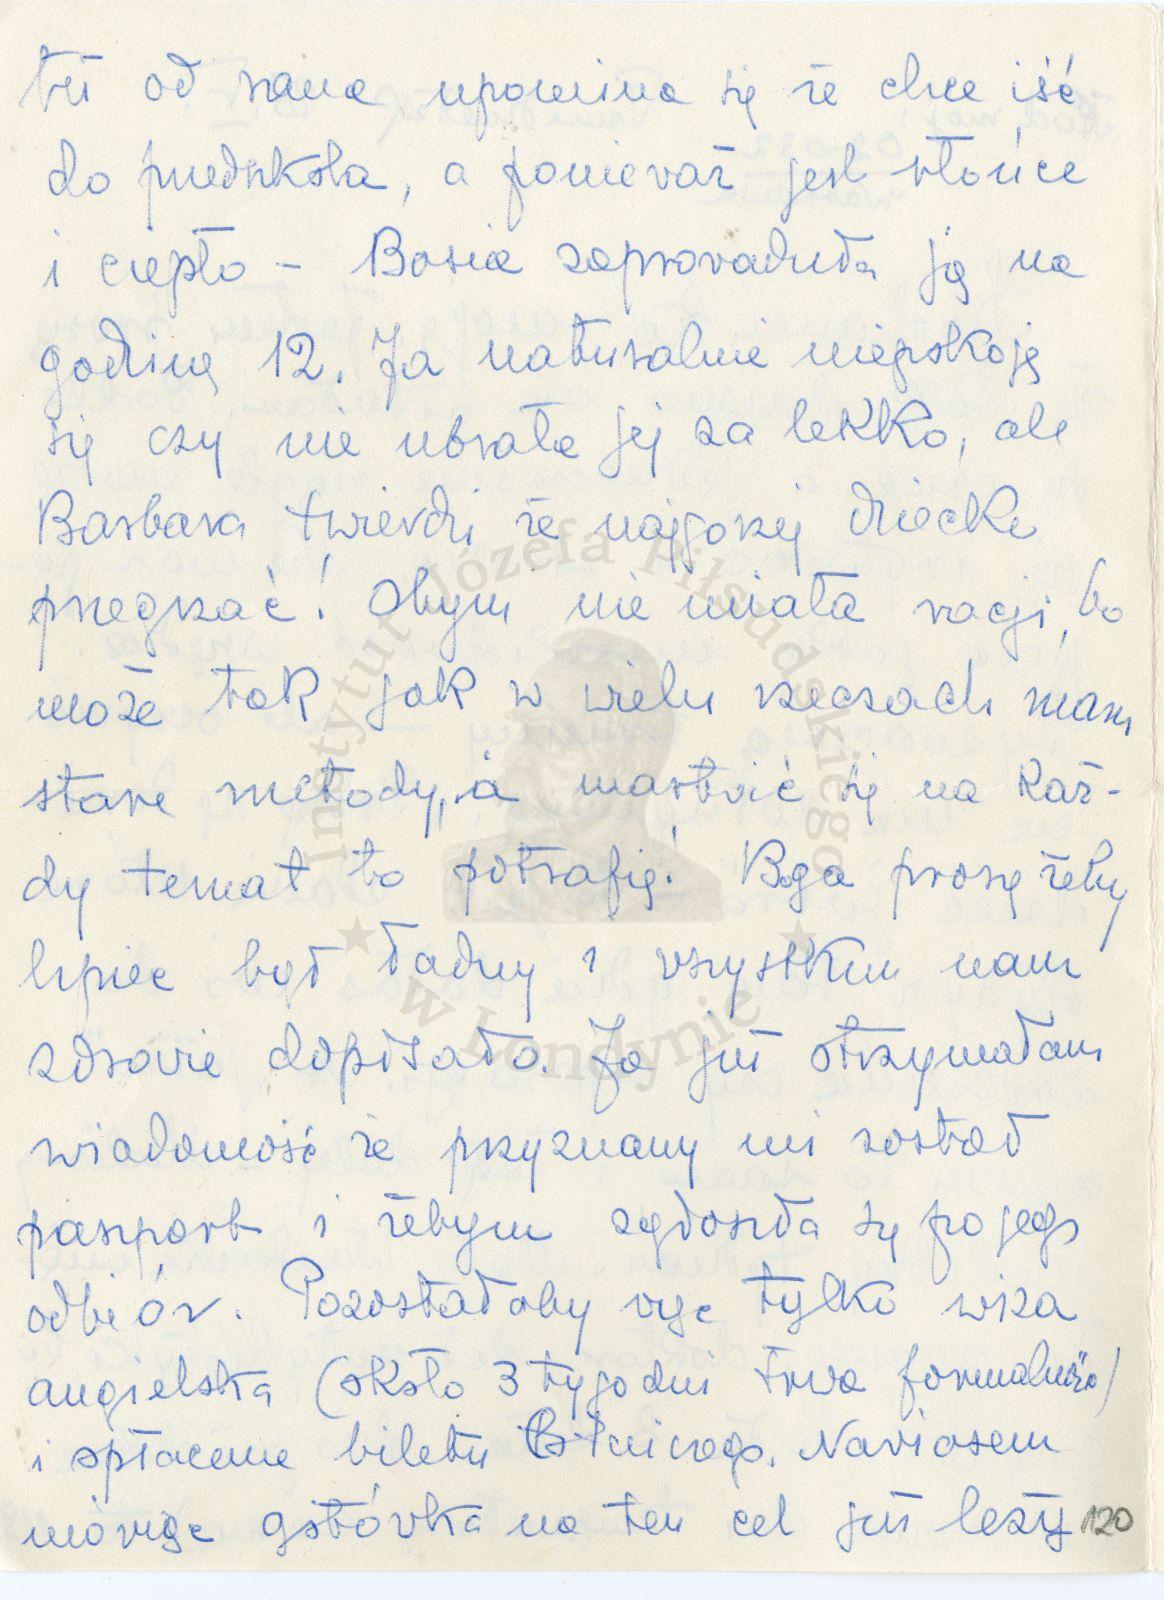 tu od rana upomina się że chce iść
do przedszkola, a ponieważ jest słońce
i ciepło – Basia zaprowadziła ją na
godzinę 12. Ja naturalnie niepokoję
się czy nie ubrała jej za lekko, ale
Barbara twierdzi że najgorzej dziecko
przegrzać! Obym nie miała racji, bo
może tak jak w wielu rzeczach mam
stare metody, a martwić się na każ-
dy temat to potrafię! Boga proszę żeby
lipiec był ładny i wszystkim nam
zdrowie dopisało. Ja już otrzymałam
wiadomość że przyznany mi został
paszport i żebym zgłosiła się po jego
odbiór. Pozostałaby więc tylko wiza
angielska (około 3 tygodni trwa formalność)
i opłacenie biletu lotniczego. Nawiasem
mówiąc gotówka na ten cel już leży
120
Instytut Józefa Piłsudskiego
w Londynie